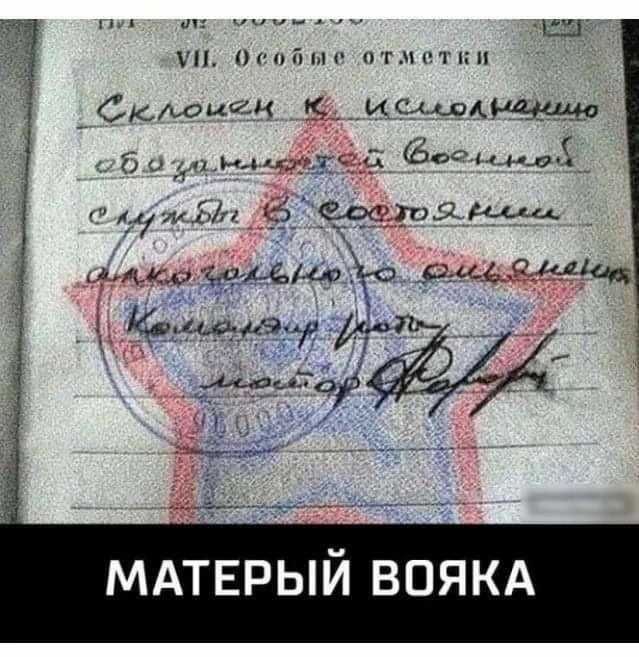 VII. Особые отметки
Склонен к исполнению
обязанностей Военной
службы в состоянии
алкогольного опьянения
Командир роты
майор
МАТЕРЫЙ ВОЯКА